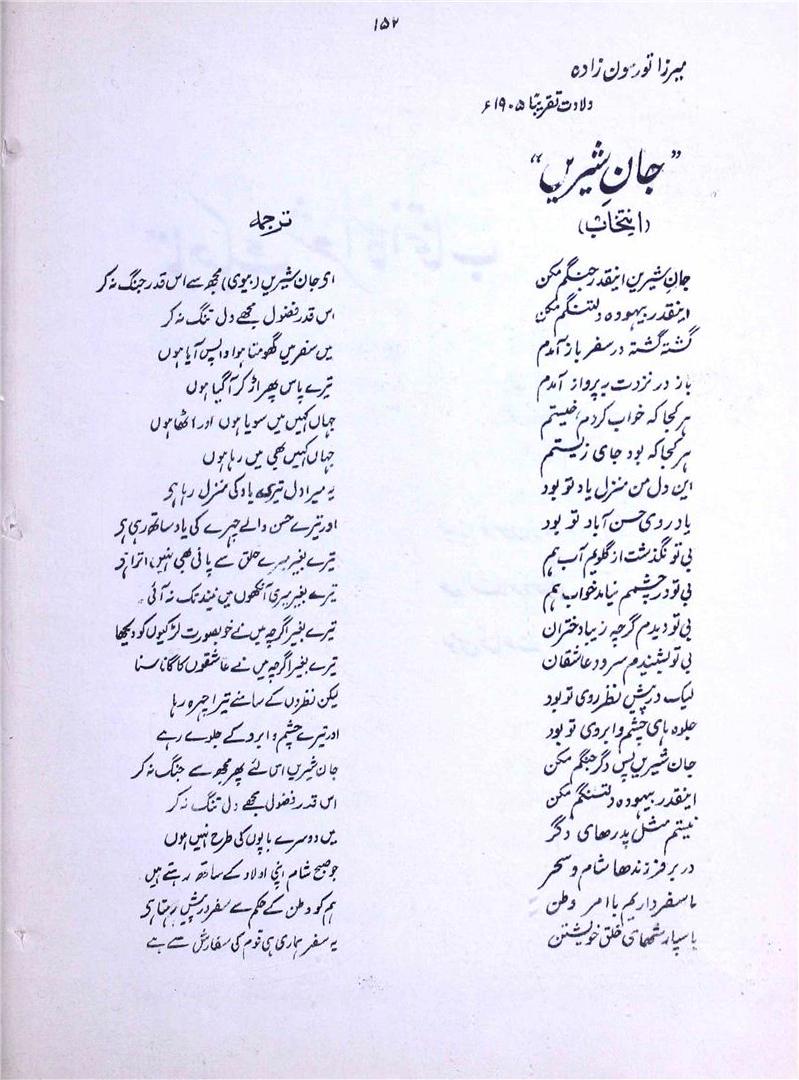 ۱۵۲
میرزا تورسون زادہ
ولادت تقریبًا ۱۹۰۵ء
”جانِ شیریں“
(انتخاب)
ترجمہ
جانِ شیرین اینقدر جنگم مکن
ای جان شیریں (بیوی) مجھ سے اس قدر جنگ نہ کر
اینقدر بیہودہ دلتنگم مکن
اس قدر فضول مجھے دل تنگ نہ کر
گشتہ گشتہ در سفر باز آمدم
میں سفر میں گھومتا ہوا واپس آیا ہوں
باز در نزدت بہ پرواز آمدم
تیرے پاس پھر اڑ کر آ گیا ہوں
ہر کجا کہ خواب کردم، خیستم
جہاں کہیں میں سویا ہوں اور اٹھا ہوں
ہر کجا کہ بود جای زیستم
جہاں کہیں بھی میں رہا ہوں
این دل من منزل یاد تو بود
یہ میرا دل تیری یاد کی منزل رہا ہی
یاد روی حسن آباد تو بود
اور تیرے حسن والے چہرے کی یاد ساتھ رہی ہی
بی تو نگذشت از گلویم آب ہم
تیرے بغیر میرے حلق سے پانی بھی نہیں اترا ہی
بی تو در چشمم نیامد خواب ہم
تیرے بغیر میری آنکھوں میں نیند تک نہ آئی
بی تو دیدم گرچہ زیبا دختران
تیرے بغیر اگرچہ میں نے خوبصورت لڑکیوں کو دیکھا
بی تو بشنیدم سرود عاشقان
تیرے بغیر اگرچہ میں نے عاشقوں کا گانا سنا
لیک در پیش نظر روی تو بود
لیکن نظروں کے سامنے تیرا چہرہ رہا
جلوہ ہای چشم و ابروی تو بود
اور تیرے چشم و ابرو کے جلوے رہے
جان شیرین پس دگر جنگم مکن
جان شیریں اس لئے پھر مجھ سے جنگ نہ کر
اینقدر بیہودہ دلتنگم مکن
اس قدر فضول مجھے دل تنگ نہ کر
نیستم مثل پدرھای دگر
میں دوسرے باپوں کی طرح نہیں ہوں
در بر فرزندھا شام و سحر
جو صبح شام اپنی اولاد کے ساتھ رہتے ہیں
ما سفر داریم با امر وطن
ہم کو وطن کے حکم سے سفر درپیش رہتا ہی
با سپارشھای خلق خویشتن
یہ سفر ہماری ہی قوم کی سفارش سے ہے